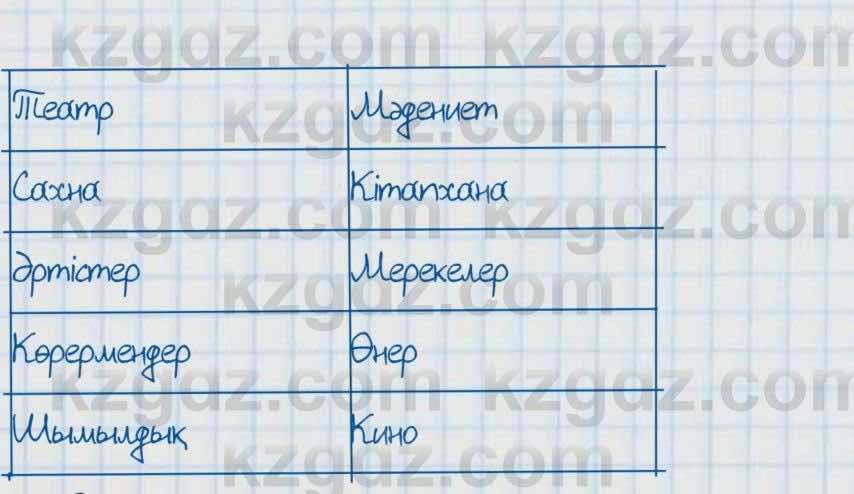 kzgdz.com kzgdz.com
Театр Мәдениет
kzgdz.com
Сахна Кітапхана
kzgdz.com kzgdz.com
Әртістер Мерекелер
kzgdz.com
Көрермендер Өнер
kzgdz.com kzgdz.com
Шымылдық Кино
kzgdz.com